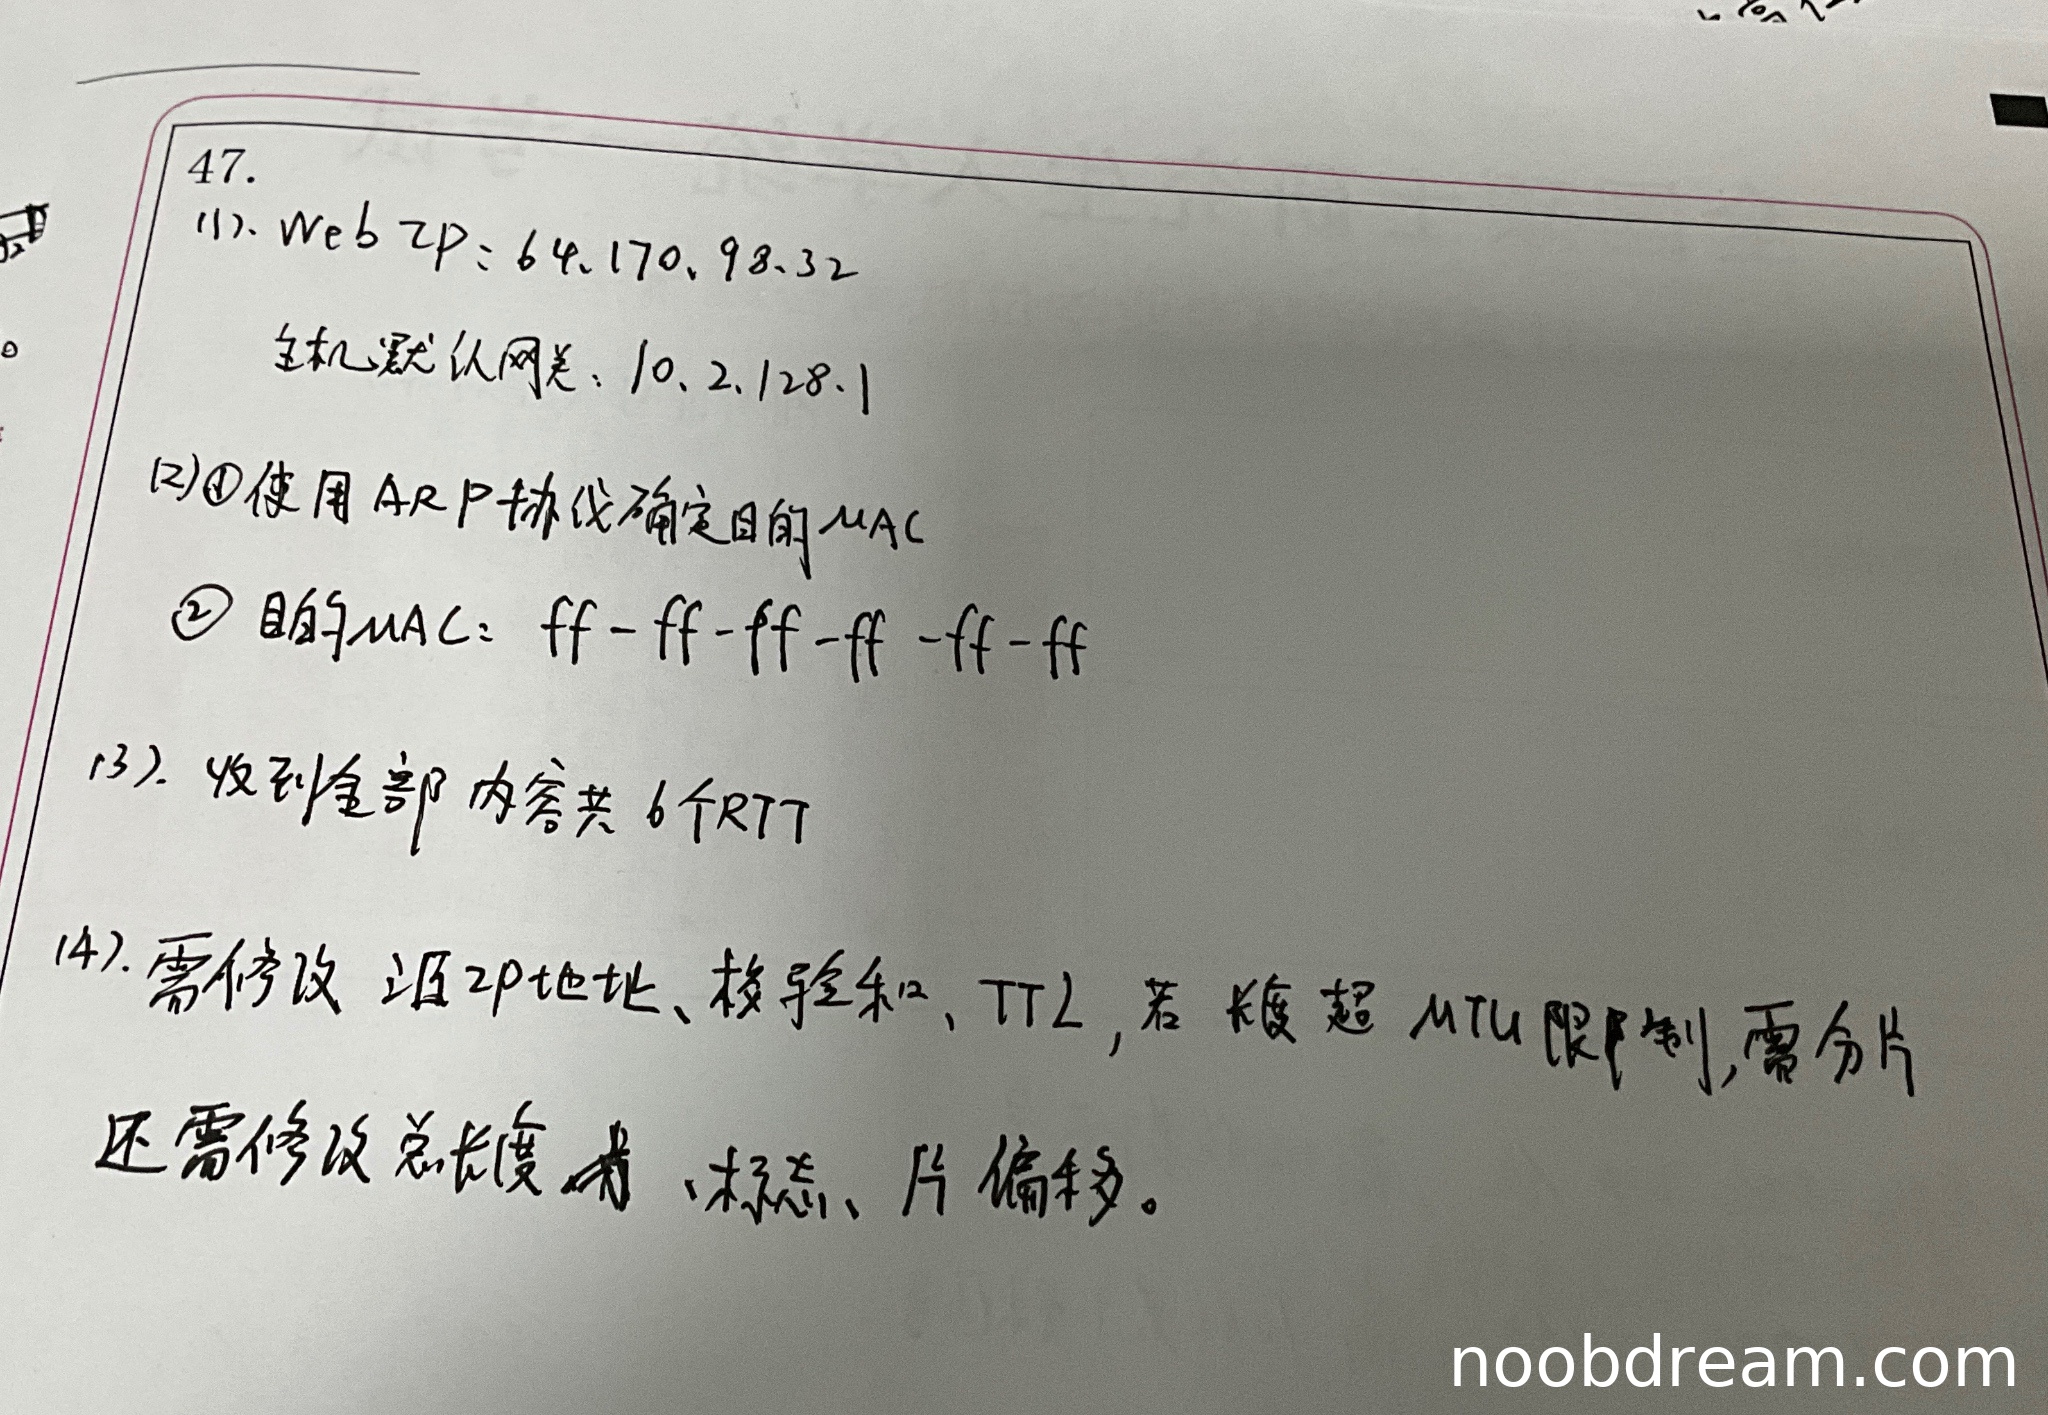 47.
(1). Web IP: 64.170.98.32
主机默认网关: 10.2.128.1
(2)①使用ARP协议确定目的MAC
② 目的MAC: ff-ff-ff-ff-ff-ff
(3). 收到全部内容共6个RTT
(4). 需修改 源IP地址、校验和、TTL,若 长度超 MTU限制,需分片
还需修改总长度 、标志、片偏移。
noobdream.com